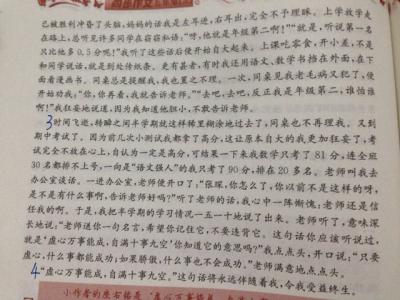 已被胜利冲昏了头脑,妈妈的话我是左耳进,右耳出,完全不予理睬。上学放学走
在路上,总听见许多同学在窃窃私语:“呀,他就是年级第二啊!”“就是,听说第一名
只比他多 0.5 分呢!”我听了这些话后便开始自大起来。上课吃零食,开小差,不是
和同学说话,就是到处传纸条。更有甚者,有时我还用语文、数学书挡在外面,在下
面看漫画书。同桌总是提醒我,我也置之不理。一次,同桌见我老毛病又犯了,便
开始劝我。“你,你再看,我就告诉老师。”“去吧,去吧,反正我是年级第二,谁怕谁
啊!”我狂妄地说道,因为我知道他胆小,不敢告诉老师。
3 时间飞逝,转瞬之间半学期就这样稀里糊涂地过去了,同桌也不再理我。又到
期中考试了。因为前几次小测试我都拿了高分,这让原本自大的我更加狂妄了,考
试完全不放在心上,自认为一定是高分,可结果一下来我数学只考了 81 分,连全班
30 名都排不上号,一向是“语文强人”的我只考了90分,排在 20 多名。老师叫我去
办公室谈话。一进办公室,老师便开口了,“张琛,你怎么了,你以前不是这样的呀,
是不是有什么事啊,告诉老师好吗?”听了老师的话,我心中一阵惭愧:老师还是信
任我的啊。于是,我把半学期的学习情况一五一十地说了出来。老师听了,意味深
长地说,“老师送你一句名言,希望你记住它,不要违背它。这句话你应该听说过,
就是‘虚心万事能成,自满十事九空。’你知道它的意思吗?”我点点头,开口说,“只要
虚心,什么事都能成功;如果骄傲,什么事也不会成功。”老师满意地点点头。
4 “虚心万事能成,自满十事九空。”这句话将永远伴随着我,令我受益终生。
小作者的座右铭是“虚心万事能成,